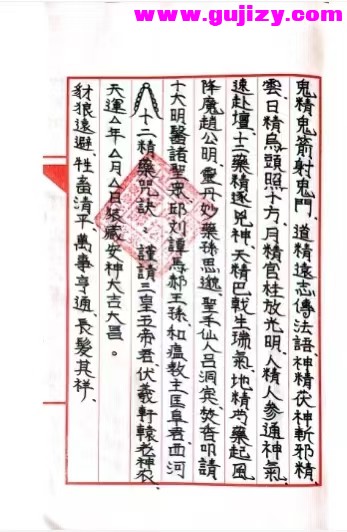 www.gujizy.com
鬼精鬼箭射鬼門、道精遠志傳法語、神精茯神斬邪精、
雲、日精烏頭照十方、月精官桂放光明、人精人參通神氣、
遠赴壇、十二藥精逐兇神、天精巴戟生瑞氣、地精芍藥起風
降魔趙公明、靈丹妙藥孫思邈、聖手仙人呂洞宾、焚香叩請
十大明醫諸聖眾、邱刘譚馬郝王孫、和瘟教主匡阜君、西河
十二精藥咒訣：謹請三皇五帝君、伏羲軒轅老神农、
天運厶年厶月厶日 藏安神大吉大昌。
豺狼遠避、牲畜清平、萬事亨通、長髮其祥、